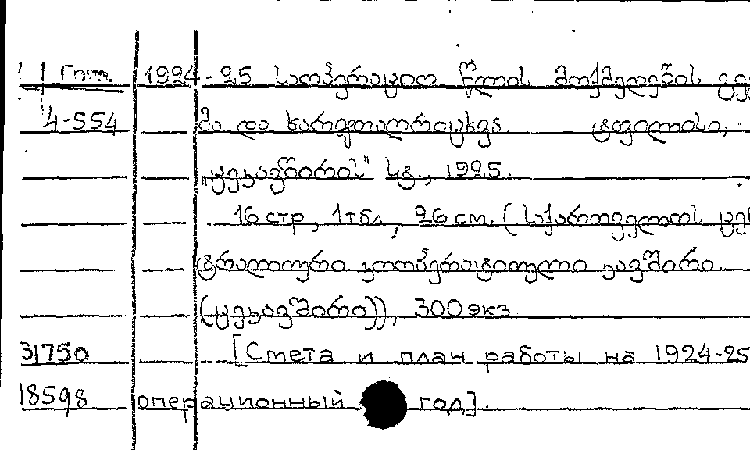 1924-25 საოპერაციო წლის მოქმედების გეგ
4-554 მა და ხარჯთაღრიცხვა. ტფილისი,
„ცეკავშირის" სტ., 1925.
16 стр, 1 табл, 26 см. (საქართველოს ცენ
ტრალური კოოპერატიული კავშირი
(ცეკავშირი)), 300 экз
31750 [Смета и план работы на 1924-25
18598 операционный год].